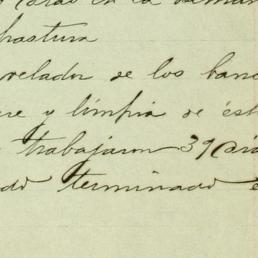 en la
pastura
velador de los banc
re y limpia de est
trabajaron 39 Ca
do terminado e